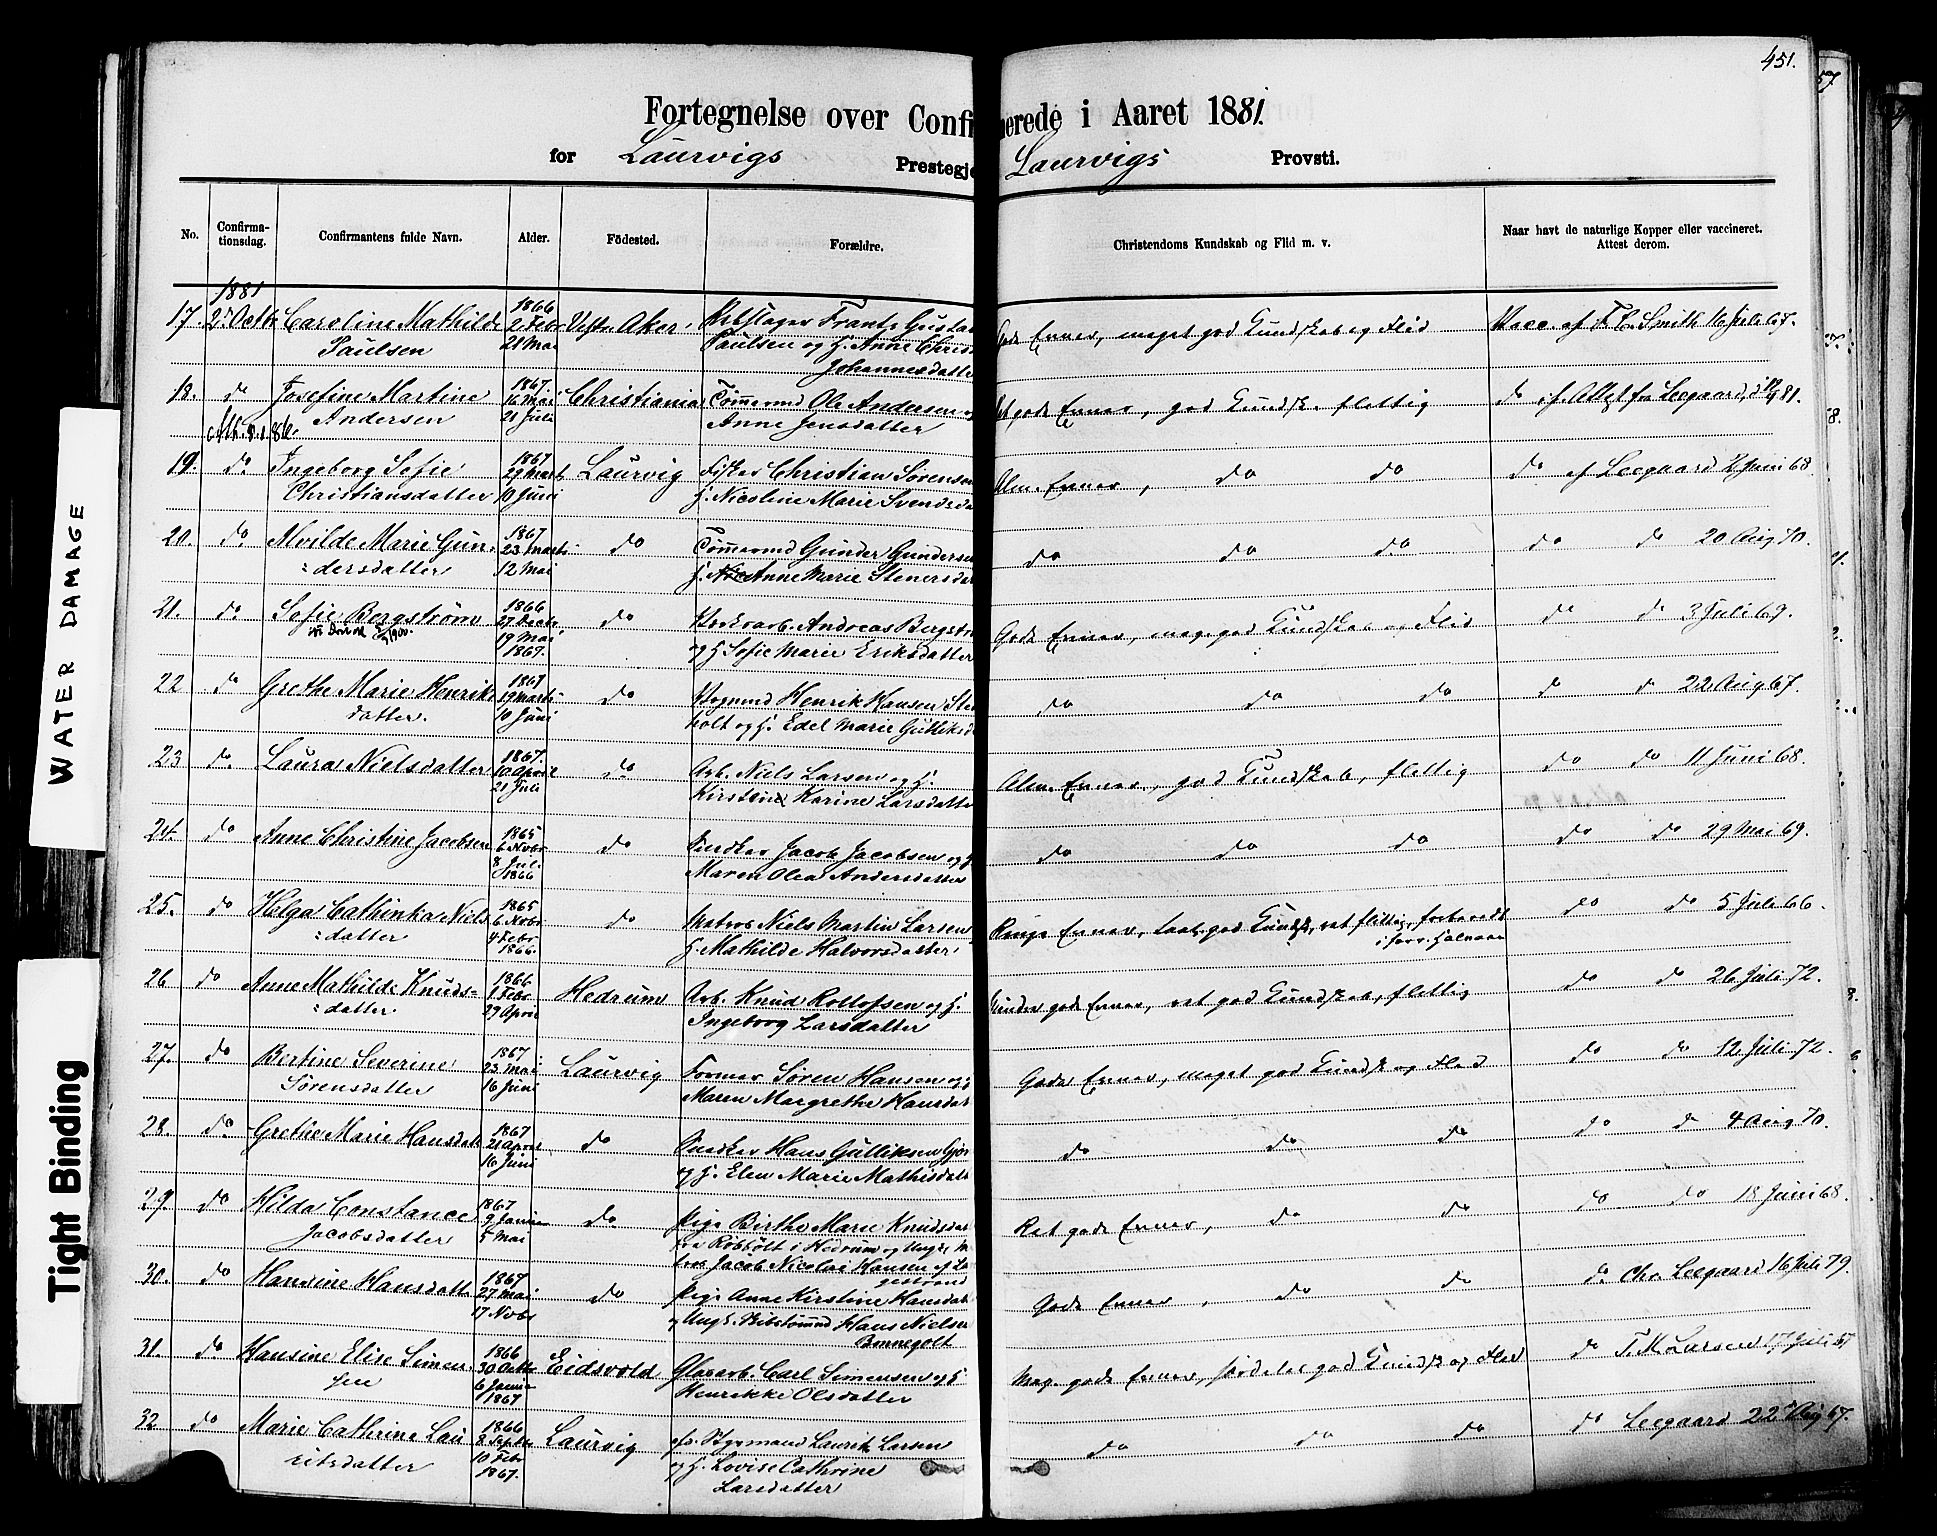 451.
Fortegnelse over Confi
nerede i Aaret 1881.
for Laurvigs Prestegje
Laurvigs Provsti.
No.
Confirma-
tionsdag.
Confirmantens fulde Navn.
Alder.
Födested.
Forældre.
Christendoms Kundskab og Flid m. v.
Naar havt de naturlige Kopper eller vaccineret.
Attest derom.
1881
17. 2 Octb Caroline Mathilde
Paulsen
1866
2 Febr
21 Mai
Vestr. Aker.
Frantz Gustav
Paulsen og H. Anne Chris
Johannesdatter
Gode Evner, meget god Kundskab og Flid
Vacc. af F.C. Smith 16 Juli 67.
18. do Josefine Martine
Andersen
1867.
16 Mai
21 Juli
Christiania
Tömmermd Ole Andersen
Anne Jensdatter
gode Evner, god Kundsk. flittig
do Leegaard
19. do Ingeborg Sofie
Christiansdatter
1867
29 Marts
10 Juni
Laurvig
Fisker Christian Sörensen
H. Nicoline Marie Svendsda
Alm. Evner, do do
do af Leegaard 2 Juni 68
20. do Alvilde Marie Gun-
dersdatter
1867
23 Marts
12 Mai
do
Tömmermd Gunder Gunderse
H. Anne Marie Stenersda
do do do
do do 20 Aug 70.
21. do Sofie Bergström
1866
27 Decb
19 Mai
1867.
do
Andreas Bergstr
og H Sofie Marie Eriksdatter
Gode Evner, meg. god Kundskab og Flid
do do 3 Juli 69.
22 do Grethe Marie Henriks
datter.
1867
19 Marts
10 Juni
do
Vognmd Henrik Hansen Ste
holt og H. Edel Marie Gulliksd
do do do
do do 22 Aug 67.
23 do Laura Nielsdatter
1867.
10 April
21 Juli
do
Arb. Niels Larsen og H.
Kirstine Karine Larsdatte
Alm. Evner, god Kundskab, flittig
do do 11 Juni 68.
24. do Anne Christine Jacobsen
1865
6 Novbr
8 Jul.
1866
do
Snedker Jacob Jacobsen og H
Maren Olea Andersdatter
do do do
do do 29 Mai 69.
25. do Helga Cathinka Niels
datter
1865
6 Novbr
4 Febr
1866.
do
Matros Niels Martin Larsen
H. Mathilde Halvorsdatter
Ringe Evner, god Kundsk, ret flittig,
do do 5 Juli 66.
26 do Anne Mathilde Knuds-
datter
1866
1 Febr
29 April
Hedrum
Arb. Knud Rollofsen og H.
Ingeborg Larsdatter
Mindre gode Evner, ret god Kundskab, flittig
do do 26 Juli 72.
27. do Bertine Severine
Sörensdatter
1867
23 Mai
16 Juni
Laurvig
Former Sören Hansen og
Maren Margrethe Hansdat
Gode Evner, meget god Kundsk og Flid
do do 12 Juli 72.
28. do Grethe Marie Hansdatt
1867
21 April
16 Juni
do
Snedker Hans Gulliksen Gjör
og H. Elen Marie Mathisdatt
do do do
do do 4 Aug 70.
29. do Hilda Constance
Jacobsdatter
1867
9 Januar
5 Mai
do
Pige Birthe Marie Knudsdat
fra Robholt i Hedrum og Ungk. M
tros Jacob Nicolai Hansen af La
gestrand
Ret gode Evner, do do
do do 18 Juni 68.
30. do Hansine Hansdatt
1867
27 Mai
17 Novbr
do
Pige Anne Kirstine Hansdat
og Ungk. Skibstömmd Hans Nielsen
Gode Evner, do do
do Chr. Leegaard 16 Juli 79.
31. do Hansine Elise Simen-
sen
1866
30 Octbr
6 Januar
1867
Eidsvold
Glasarb. Carl Simensen og H
Henrikke Olsdatter
Meg. gode Evner, god Kundsk og Flid
do T. M. Larsen 17 Juli 67
32 do Marie Cathrine Lau
ritsdatter
1866
8 Septbr
10 Febr
1867.
Laurvig
afd. Styrmand Laurits Larsen
og H. Lovise Cathrine
Larsdatter
do do do
do Leegaard 22 Aug 67.
WATER DAMAGE
Tight Binding